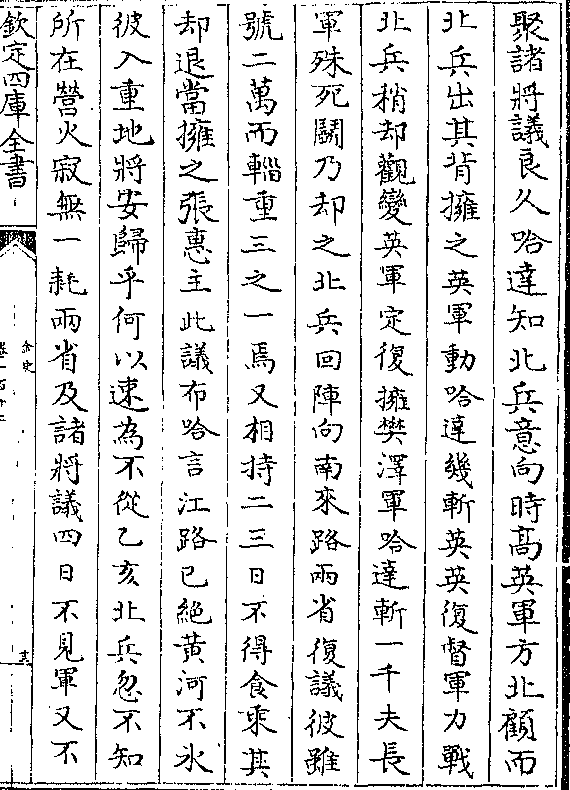 聚諸將議良久哈達知北兵意向時高英軍方北顧而
北兵出其背擁之英軍動哈達幾斬英英復督軍力戰
北兵稍却觀變英軍定復擁樊澤軍哈達斬一千夫長
軍殊死鬬乃却之北兵回陣向南來路兩省復議彼雖
號二萬而輜重三之一焉又相持二三日不得食乘其
却退當擁之張惠主此議布哈言江路已絶黃河不氷
彼入重地將安歸乎何以速為不從乙亥北兵忽不知
所在營火寂無一耗兩省及諸將議四日不見軍又不
欽定四庫全書
金史